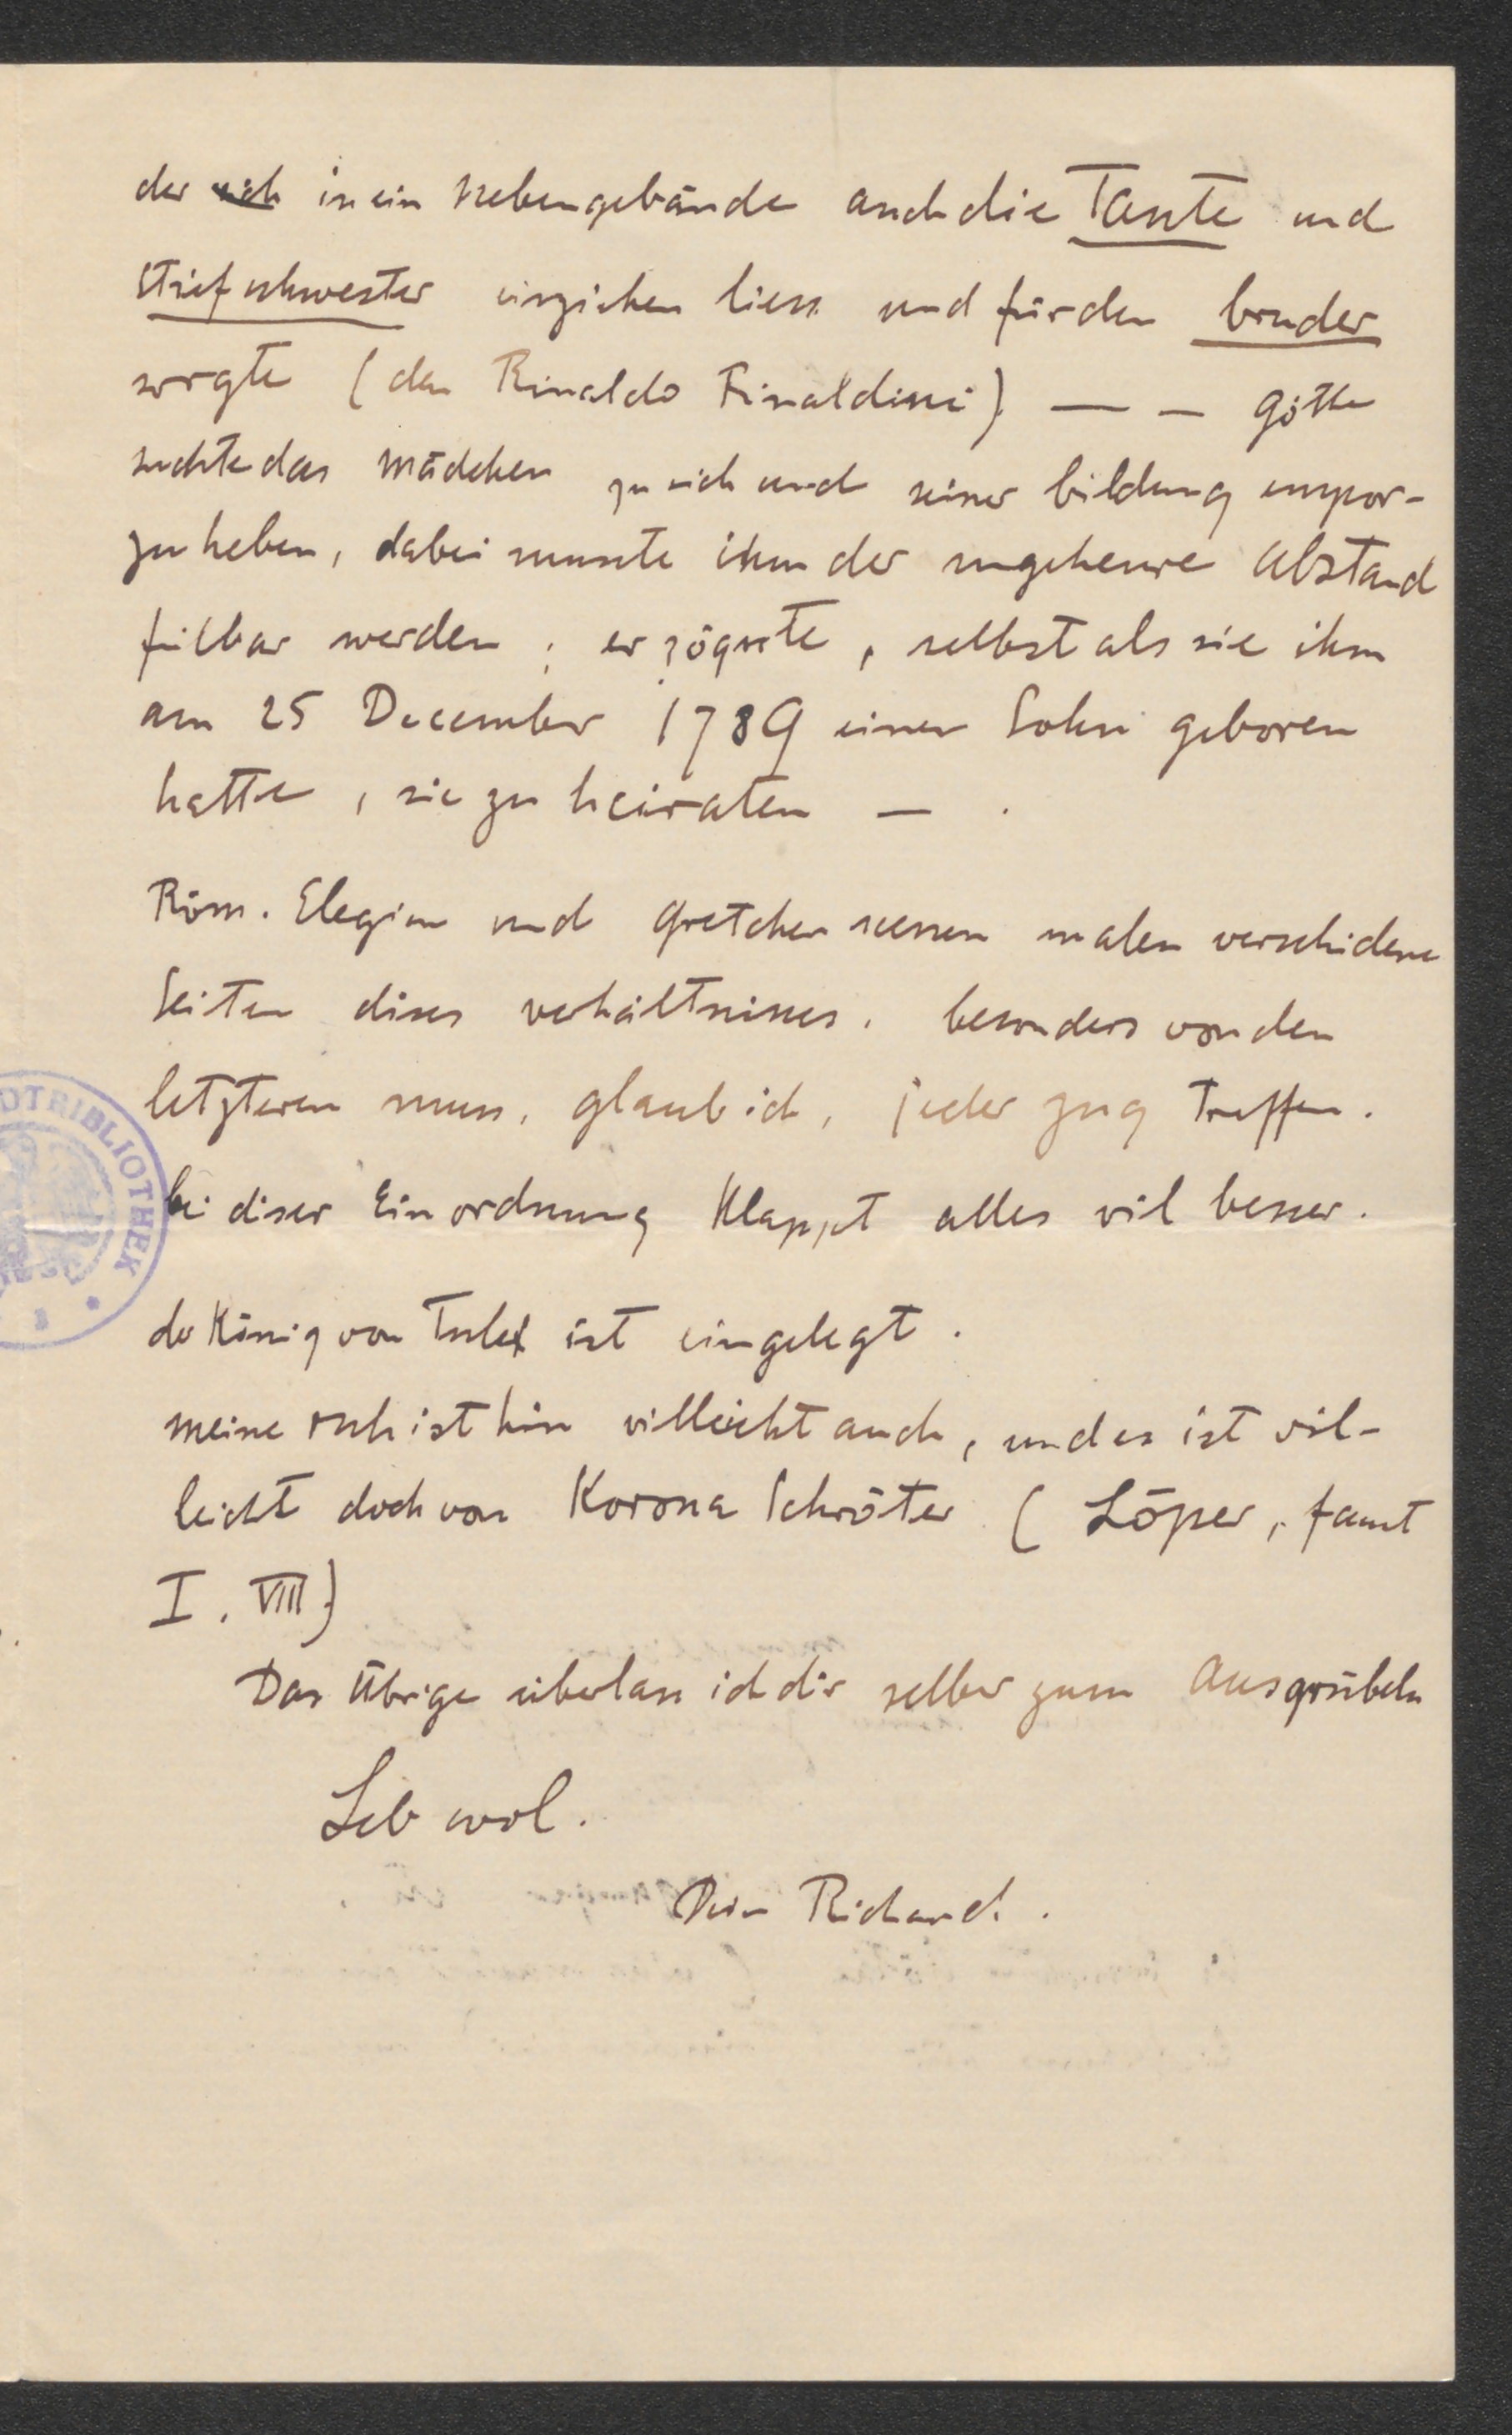 der sich in ein Nebengebäude auch die Tante und
Stiefschwester einziehen liess und für den bruder
sorgte (den Rinaldo Rinaldini) — — Göthe
suchte das Mädchen zu sich und seiner bildung empor-
zu heben, dabei musste ihm der ungeheure Abstand
fülbar werden; er zögerte, selbst als sie ihm
am 25 December 1789 einen Sohn geboren
hatte, sie zu heiraten — .
Röm. Elegien und Gretchen scenen malen verschidene
Seiten dises verhältnisses. besonders von den
letzteren muss, glaub ich, jeder zug treffen.
bei diser Einordnung Klappt alles vil besser.
der König von Tule ist eingelegt.
meine ruh ist hin villeicht auch, und es ist vil-
leicht doch von Korona Schröter (Löper, faust
I. VIII)
Das Übrige überlass ich dir selber zum Ausgrübeln
Leb wol.
Dein Richard.
DTBIBLIOTHEK